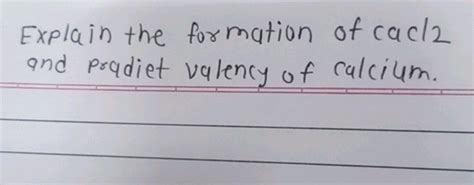 Explain the formation of cacl2
and pradiet valency of calcium.